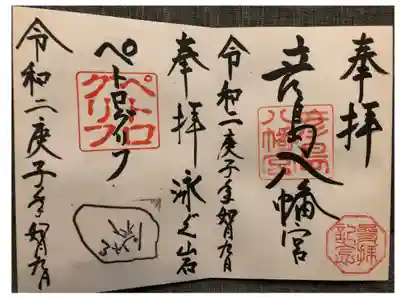 奉拝
彦島八幡宮
彦島
八幡宮
参拝
記念
令和二庚子年
奉拝 泳ぐ岩
ペトログリフ
ペトロ
グリフ
令和二庚子年